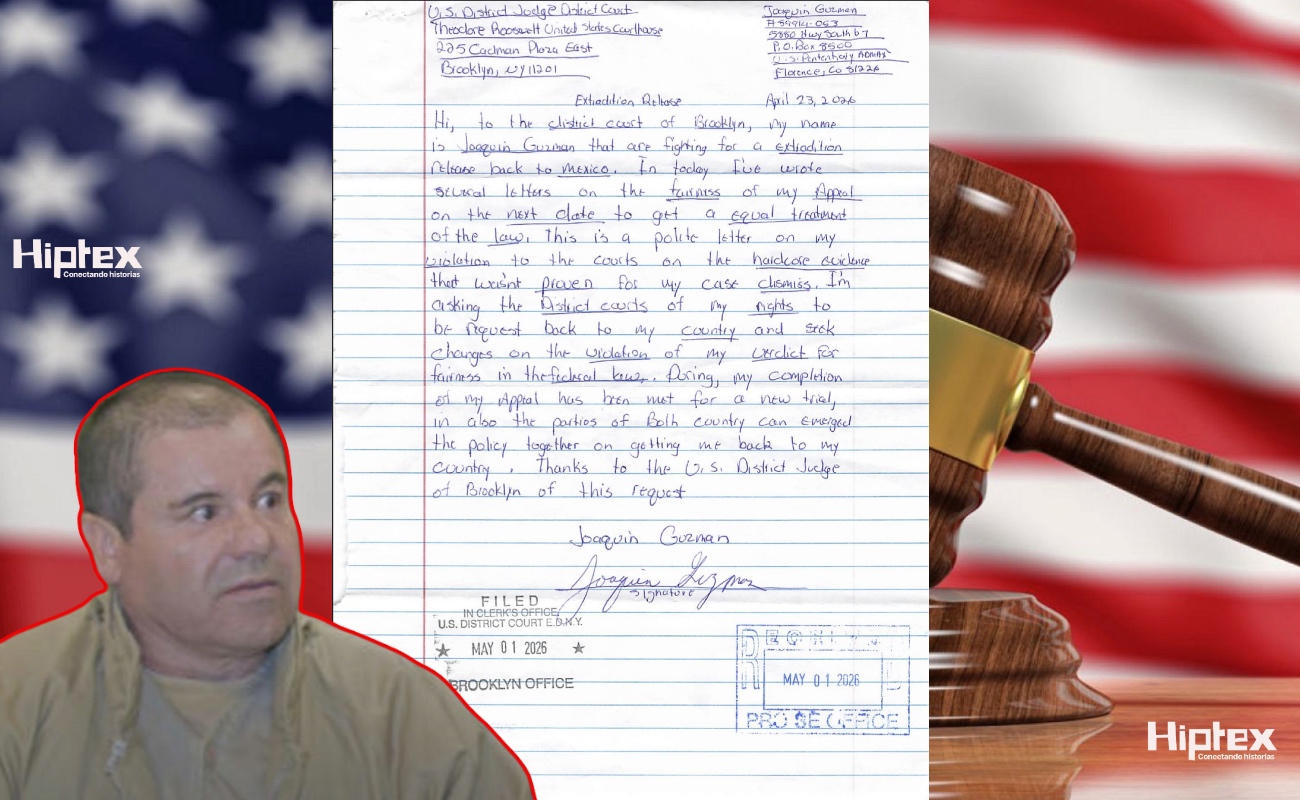 U.S. District Judge District Court
Theodore Roosevelt United States Courthouse
225 Cadman Plaza East
Brooklyn, NY 11201
Joaquin Guzman
# 89914-053
5880 Hwy South 67
P.O. Box 8500
U.S. Penitentiary ADMAX
Florence, Co 81226
Extradition Release
April 23, 2026
Hi, to the district court of Brooklyn, my name
is Joaquin Guzman that are fighting for a extradition
release back to mexico. In today I've wrote
several letters on the fairness of my Appeal
on the next date to get a equal treatment
of the law. This is a polite letter on my
violation to the courts on the hardcore evidence
that wasn't proven for my case dismiss. I'm
asking the District courts of my rights to
be request back to my country and seek
changes on the violation of my verdict for
fairness in the federal law. During, my completion
of my Appeal has been met for a new trial,
in also the parties of Both country can emerged
the policy together on getting me back to my
country. Thanks to the U.S. District Judge
of Brooklyn of this request
Joaquin Guzman
Joaquin Guzman
Signature
FILED
IN CLERK'S OFFICE
U.S. DISTRICT COURT E.D.N.Y.
★ MAY 01 2026 ★
BROOKLYN OFFICE
MAY 01 2026
PRO SE OFFICE
Hiptex
Conectando historias
Hiptex
Conectando historias